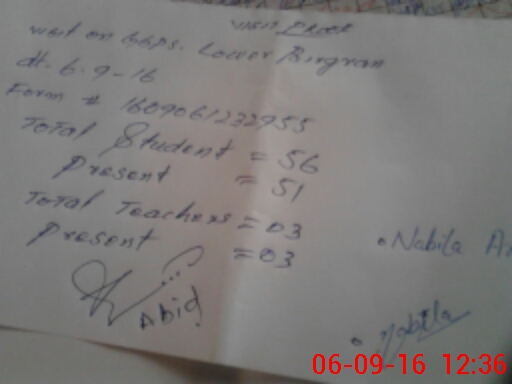 VISIT PROOF
visit on GGPS. Lower Birgran
dt. 6-9-16
Form # 1609061232955
Total Student = 56
Present = 51
Total Teachers = 03
Present = 03
• Nabila
Abid
• Nabila
06-09-16 12:36